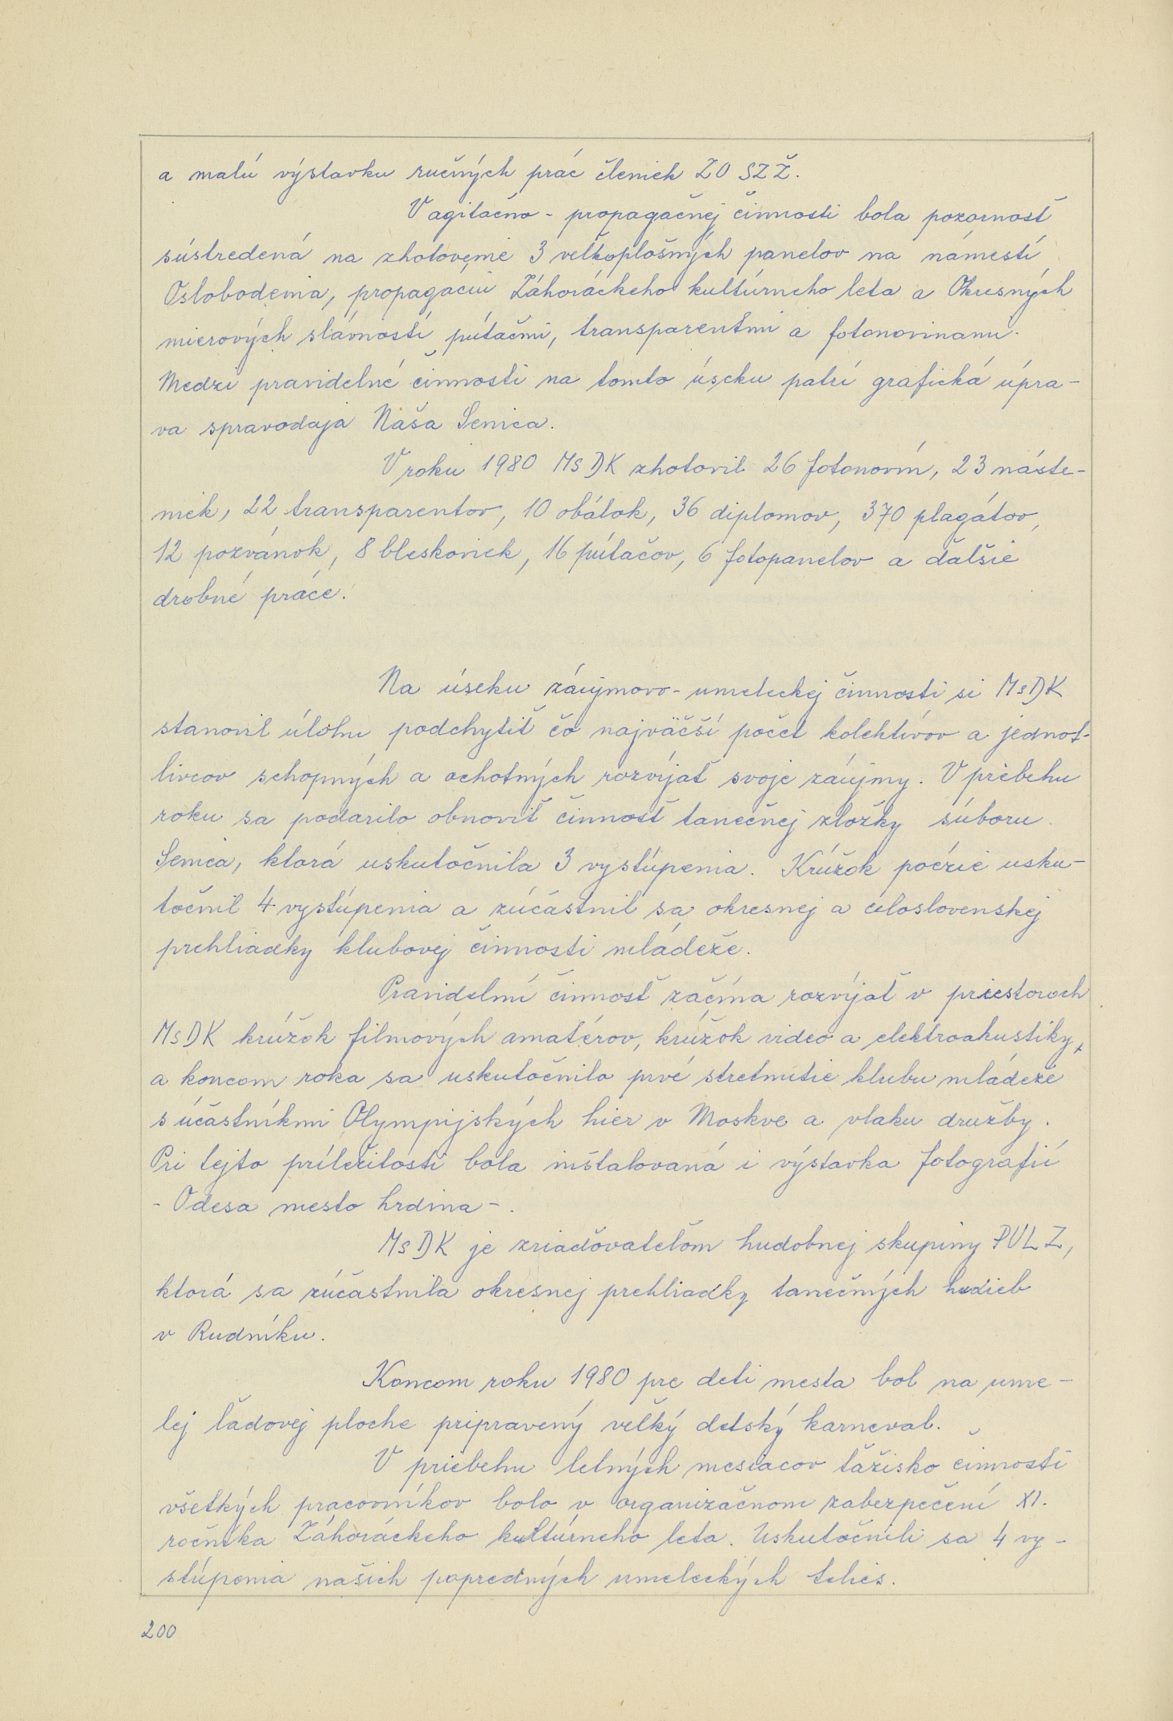 a malú výstavku ručných prác členiek ZO SZŽ.
V agitačno - propagačnej činnosti bola pozornosť
sústredená na zhotovenie 3 veľkoplošných panelov na námestí
Oslobodenia, propagáciu Záhoráckeho kultúrneho leta a Okresných
mierových slávností pútačmi, transparentmi a fotonovinami.
Medzi pravidelné činnosti na tomto úseku patrí grafická úpra-
va spravodaja Naša Senica.
V roku 1980 MsDK zhotovil 26 fotonovín, 23 náste-
niek, 22 transparentov, 10 obálok, 36 diplomov, 370 plagátov,
12 pozvánok, 8 bleskoviek, 16 pútačov, 6 fotopanelov a ďalšie
drobné práce.
Na úseku záujmovo - umeleckej činnosti si MsDK
stanovil úlohu podchytiť čo najväčší počet kolektívov a jednot-
livcov schopných a ochotných rozvíjať svoje záujmy. V priebehu
roku sa podarilo obnoviť činnosť tanečnej zložky súboru
Senica, ktorá uskutočnila 3 vystúpenia. Krúžok poézie usku-
točnil 4 vystúpenia a zúčastnil sa okresnej a celoslovenskej
prehliadky klubovej činnosti mládeže.
Pravidelnú činnosť začína rozvíjať v priestoroch
MsDK krúžok filmových amatérov, krúžok video a elektroakustiky,
a koncom roka sa uskutočnilo prvé stretnutie klubu mládeže
s účastníkmi Olympijských hier v Moskve a vlaku družby.
Pri tejto príležitosti bola inštalovaná i výstavka fotografií
- Odesa mesto hrdina - .
MsDK je zriaďovateľom hudobnej skupiny PULZ,
ktorá sa zúčastnila okresnej prehliadky tanečných hudieb
v Rudníku.
Koncom roku 1980 pre deti mesta bol na ume-
lej ľadovej ploche pripravený veľký detský karneval.
V priebehu letných mesiacov ťažisko činnosti
všetkých pracovníkov bolo v organizačnom zabezpečení XI.
ročníka Záhoráckeho kultúrneho leta. Uskutočnili sa 4 vy-
stúpenia našich popredných umeleckých telies.
200